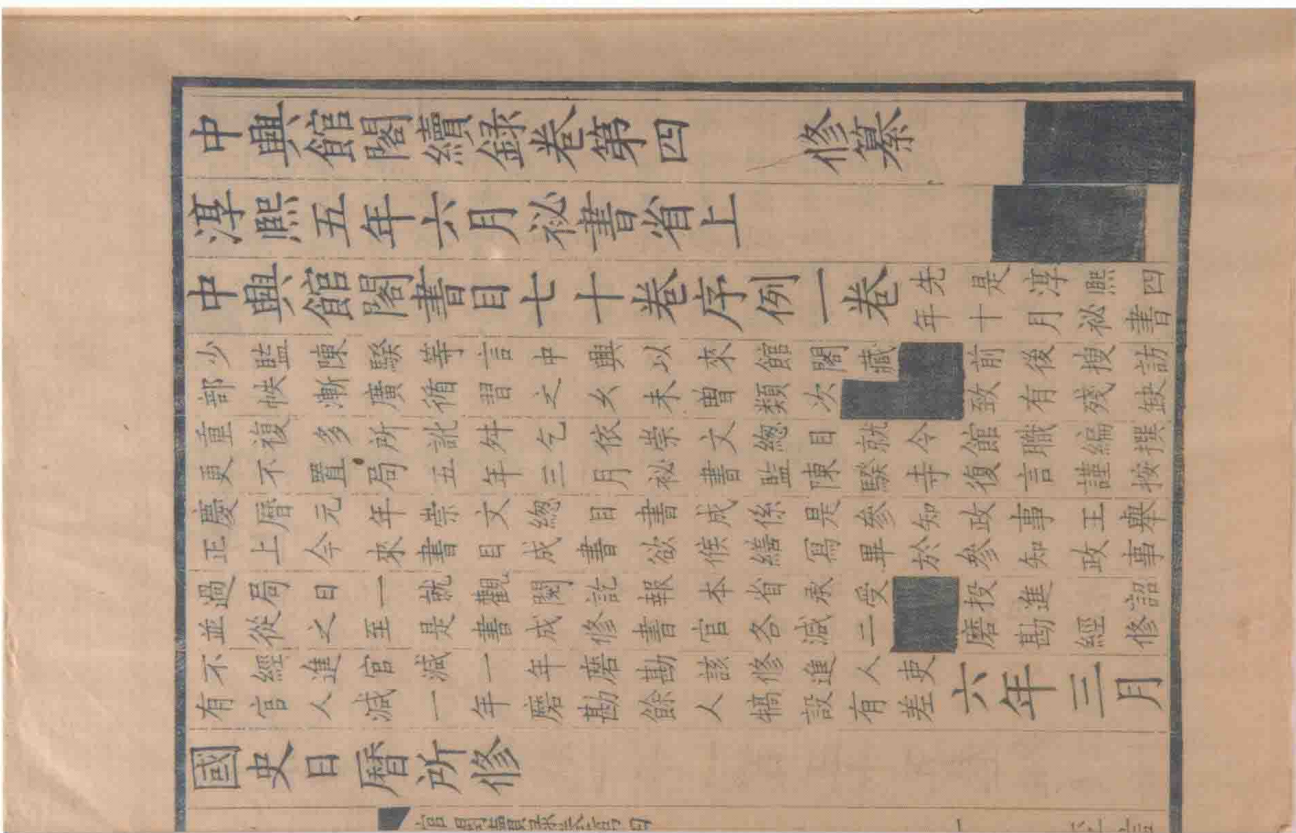 中興館閣續錄卷第四　修纂
淳熙五年六月祕書省上
中興館閣書目七十卷序例一卷
先是淳熙四
年十月祕書
少監陳騤等言中興以來館閣藏前後搜訪
部帙漸廣循習之幺未曾類次致有殘缺
重複多所訛舛乞依崇文總目就令館職編撰
更不置局五年三月祕書監陳騤寺復言謹按
慶曆元年崇文總目書成係是參知政事王舉
正上今來書目成書欲候繕寫畢於參知政事
過局日一就觀閱訖報本省承受投進詔
並從之至是書成修書官各減二磨勘經修
不經進官減一年磨勘該修進人吏
有官人減一年磨勘餘人犒設有差
六年三月
國史日曆所修